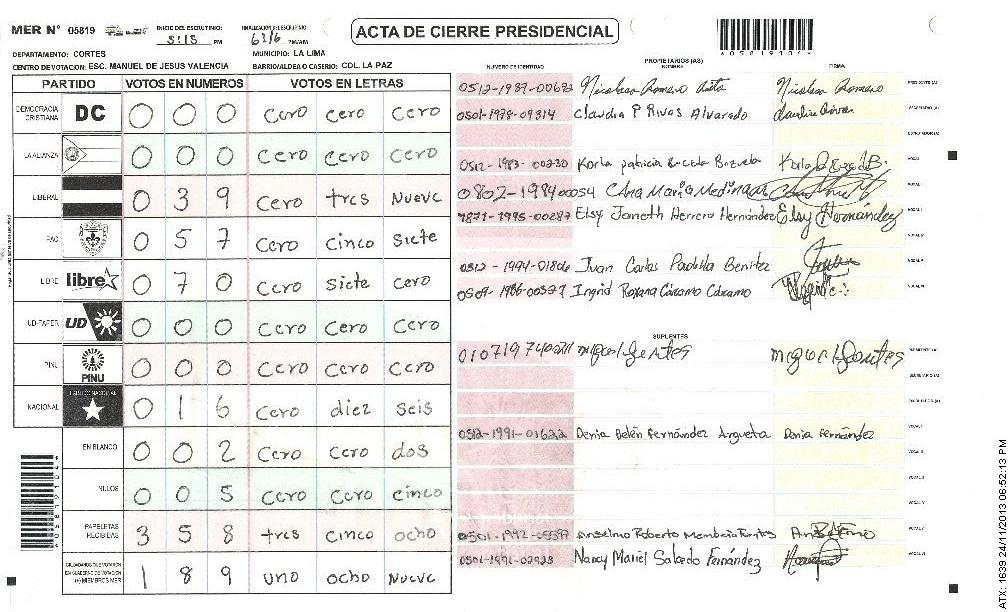 MER Nº 05819
INICIO DEL ESCRUTINIO:
5:15 PM
FINALIZACION DEL ESCRUTINIO:
PM/AM
ACTA DE CIERRE PRESIDENCIAL
DEPARTAMENTO: CORTES
MUNICIPIO: LA LIMA
CENTRO DE VOTACION: ESC. MANUEL DE JESUS VALENCIA
BARRIO/ALDEA O CASERIO: COL. LA PAZ
PARTIDO VOTOS EN NUMEROS VOTOS EN LETRAS
DEMOCRACIA CRISTIANA DC 0 0 0 cero cero cero
LA ALIANZA 0 0 0 cero cero cero
LIBERAL 0 3 9 cero tres nueve
PAC 0 5 7 cero cinco siete
LIBRE libre 0 7 0 cero siete cero
UD-FAPER UD 0 0 0 cero cero cero
PINU PINU 0 0 0 cero cero cero
NACIONAL PARTIDO NACIONAL 0 1 6 cero diez seis
EN BLANCO 0 0 2 cero cero dos
NULOS 0 0 5 cero cero cinco
PAPELETAS RECIBIDAS 3 5 8 tres cinco ocho
CIUDADANOS QUE VOTARON EN CUADERNO DE VOTACION (+) MIEMBROS MER 1 8 9 uno ocho nueve
PROPIETARIOS (AS)
NUMERO DE IDENTIDAD NOMBRE FIRMA
Romero Romero PRESIDENTE (A)
0501-1978-09314 Claudia P Rivas Alvarado SECRETARIO (A)
ESCRUTADOR (A)
0512-1983-00230 Karla patricia VOCAL I
0802-1984 Ana Maria Medina
Elsy Janeth Herrera Hernández Elsy Hernández
Juan Carlos Padilla Benitez
Ingrid Roxana Cáramo Cáramo
SUPLENTES
miguel fuentes miguel fuentes PRESIDENTE (A)
SECRETARIO (A)
ESCRUTADOR (A)
0512-1991-01622 Denia Belén Fernández Argueta Denia Fernández
Anselmo Roberto
0501-1991-02923 Nancy Mariel Salcedo Fernández
ATX: 1639 24/11/2013 06:52:13 PM